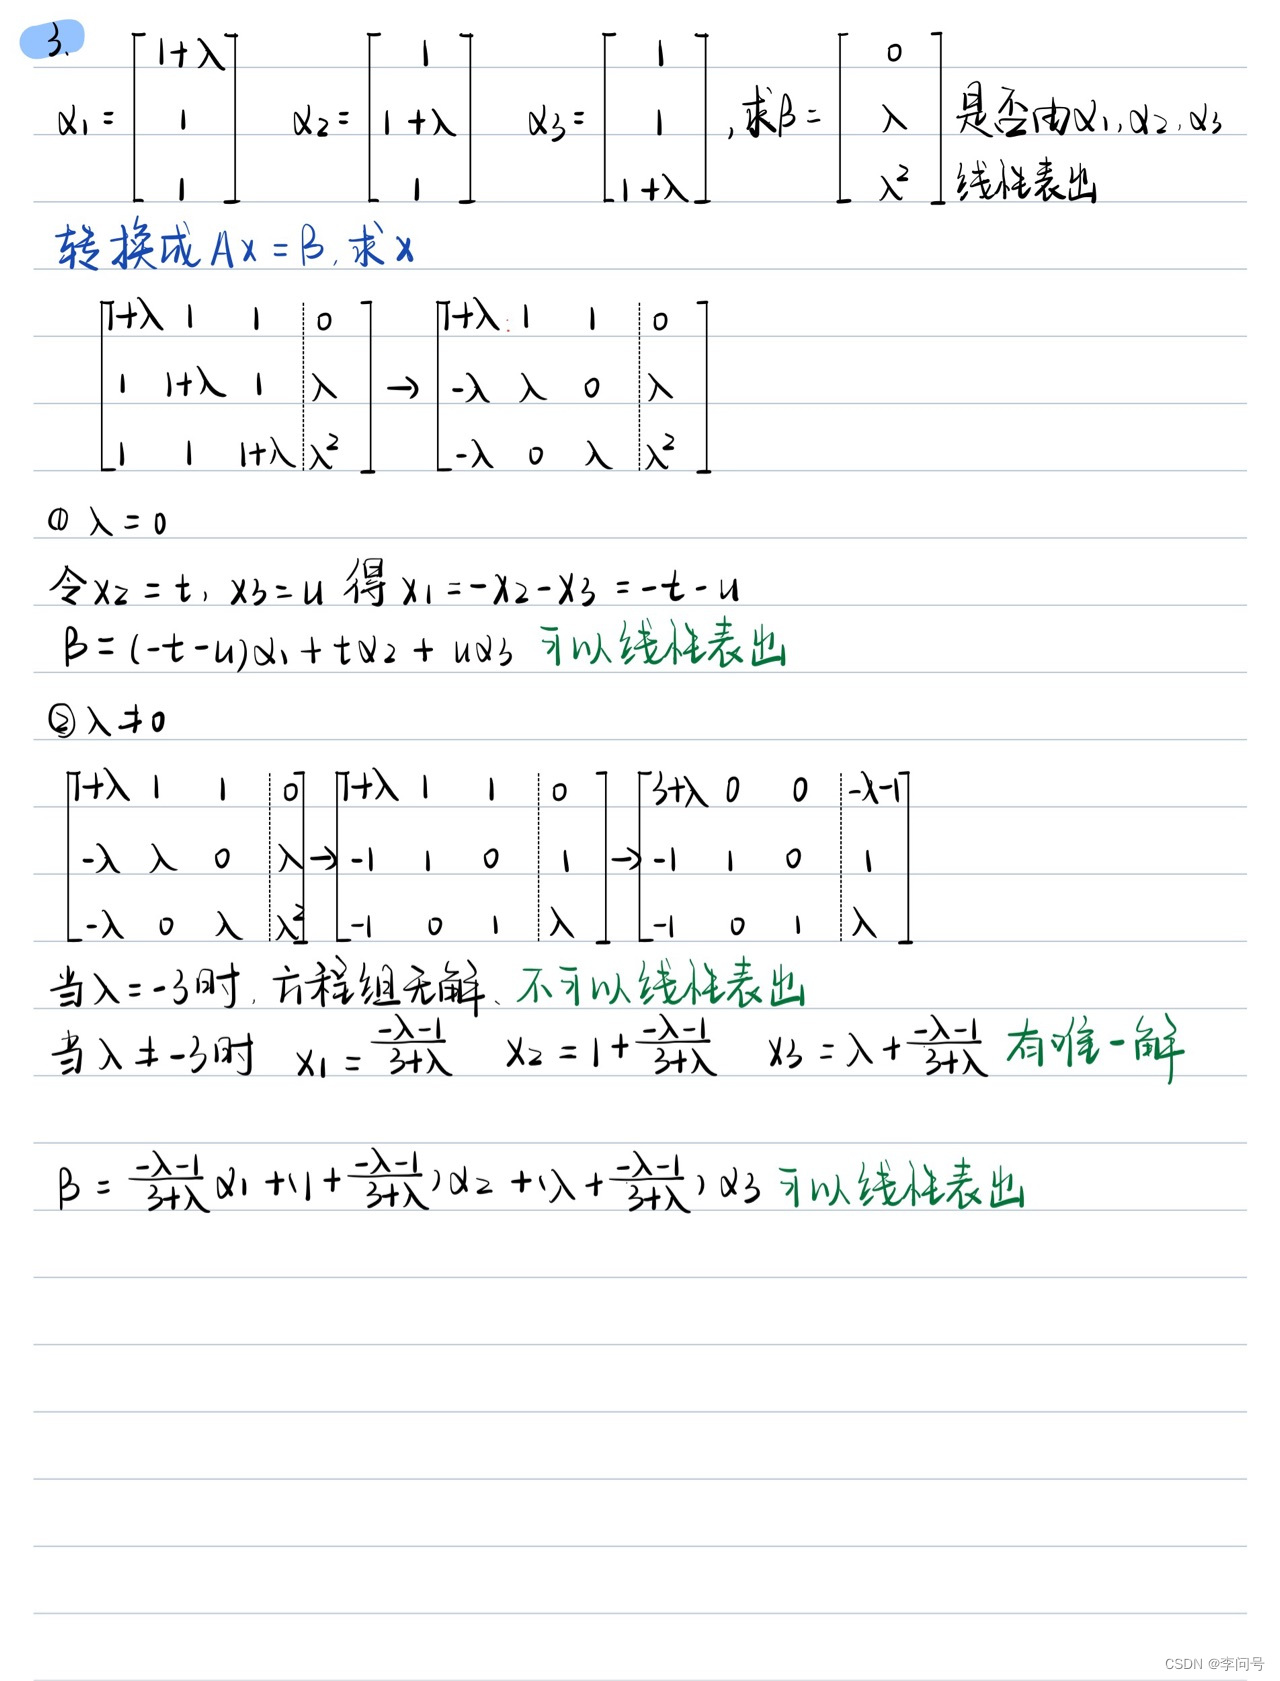 3.
α1 = [1+λ 1 1] α2 = [1 1+λ 1] α3 = [1 1 1+λ] , 求β = [0 λ λ²] 是否由α1, α2, α3
线性表出
转换成 Ax = β, 求x
[1+λ 1 1 | 0] → [1+λ 1 1 | 0]
[1 1+λ 1 | λ] [-λ λ 0 | λ]
[1 1 1+λ | λ²] [-λ 0 λ | λ²]
① λ = 0
令 x2 = t, x3 = u 得 x1 = -x2-x3 = -t-u
β = (-t-u)α1 + tα2 + uα3 可以线性表出
② λ ≠ 0
[1+λ 1 1 | 0] → [1+λ 1 1 | 0] → [3+λ 0 0 | -λ-1]
[-λ λ 0 | λ] [-1 1 0 | 1] [-1 1 0 | 1]
[-λ 0 λ | λ²] [-1 0 1 | λ] [-1 0 1 | λ]
当λ = -3时, 方程组无解、不可以线性表出
当λ ≠ -3时 x1 = (-λ-1)/(3+λ) x2 = 1 + (-λ-1)/(3+λ) x3 = λ + (-λ-1)/(3+λ) 有唯一解
β = (-λ-1)/(3+λ) α1 + (1 + (-λ-1)/(3+λ)) α2 + (λ + (-λ-1)/(3+λ)) α3 可以线性表出
CSDN @李问号